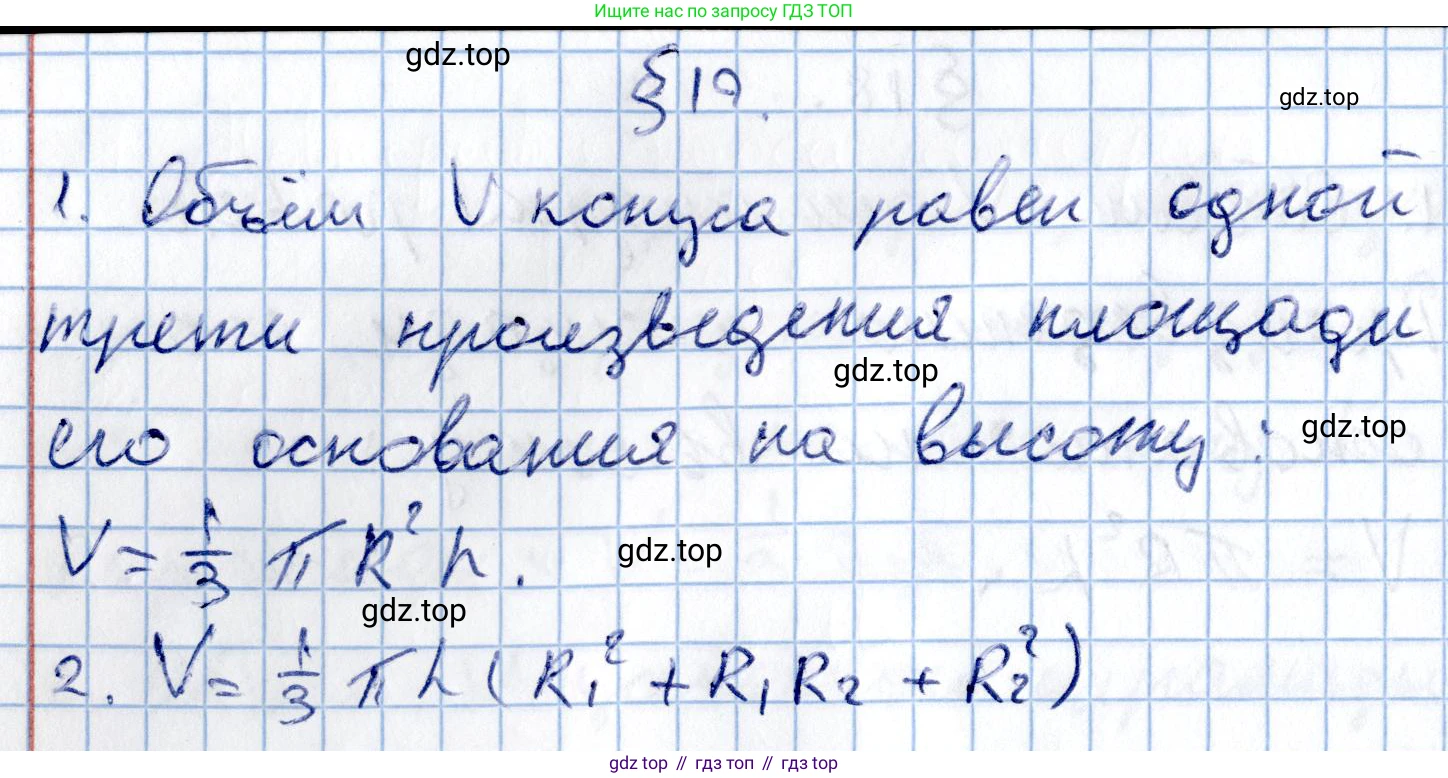 Ищите нас по запросу ГДЗ ТОП
gdz.top
§ 19.
gdz.top
1. Объём V конуса равен одной
трети произведения площади
gdz.top
его основания на высоту:
gdz.top
V = 1/3 π R² h.
gdz.top
gdz.top
2. V = 1/3 π h (R₁² + R₁R₂ + R₂²)
gdz top // гдз топ // гдз top